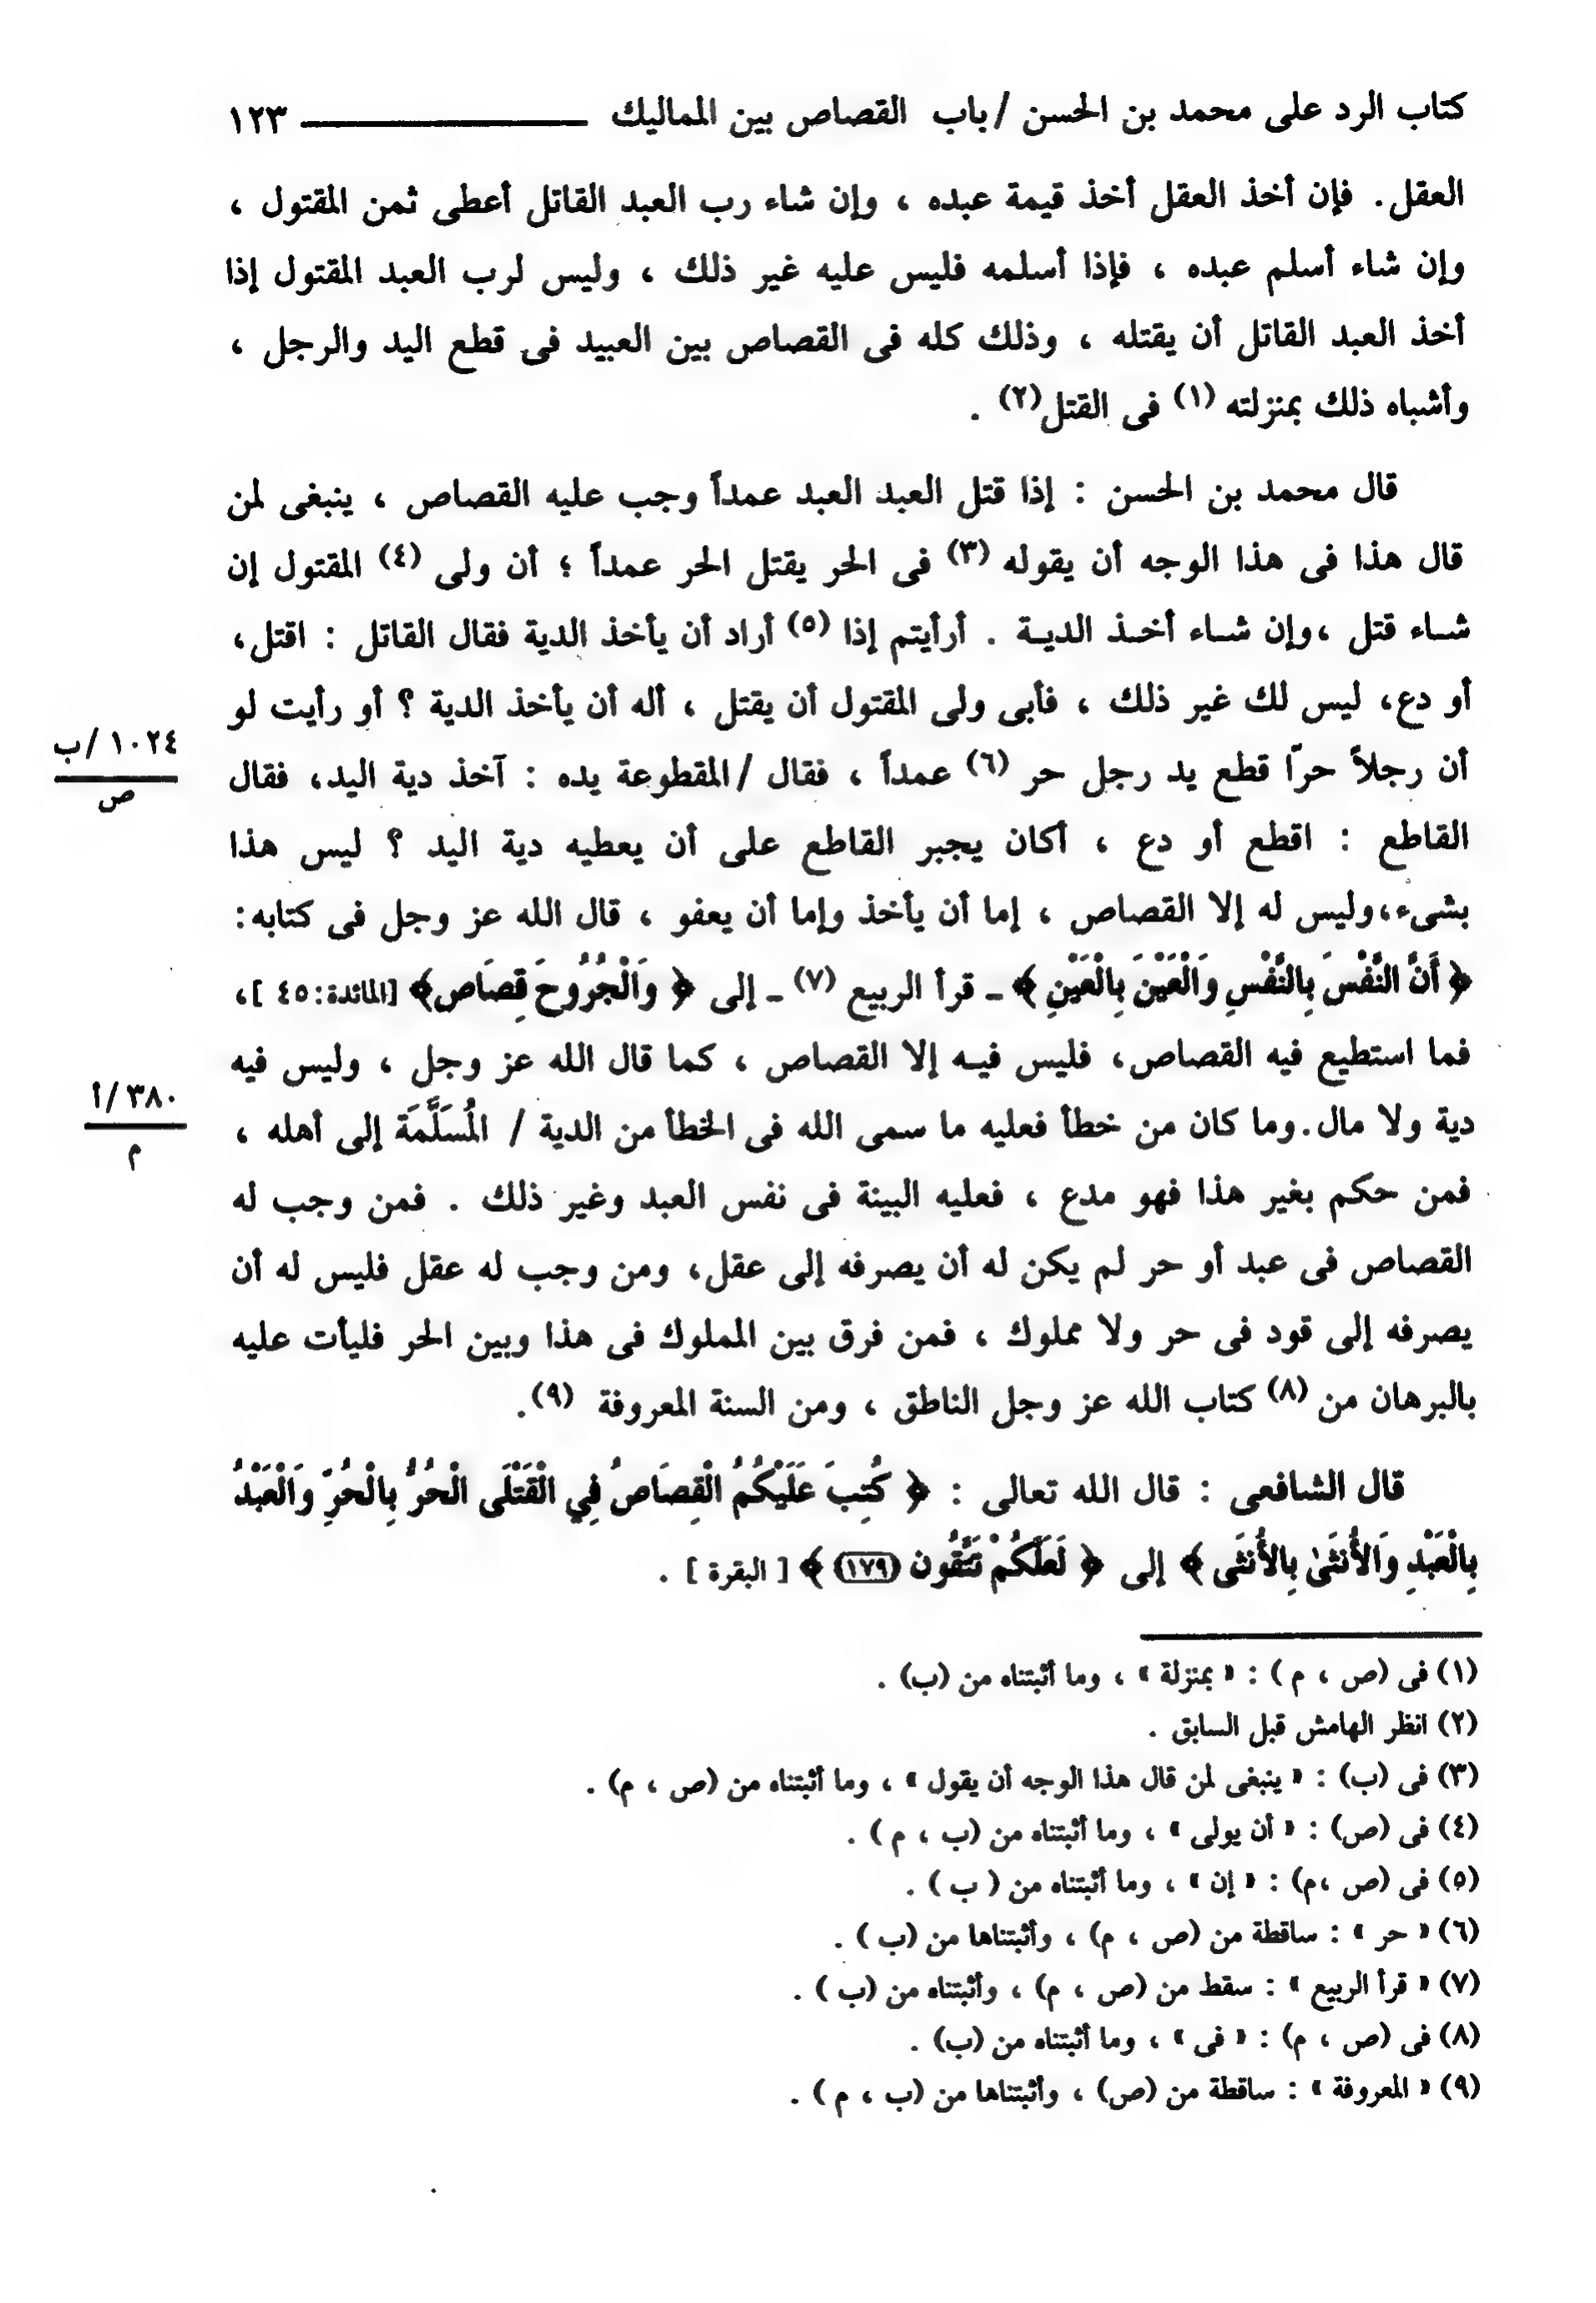 كتاب الرد على محمد بن الحسن / باب القصاص بين المماليك ــــــــــــ ١٢٣
العقل. فإن أخذ العقل أخذ قيمة عبده ، وإن شاء رب العبد القاتل أعطى ثمن المقتول ،
وإن شاء أسلم عبده ، فإذا أسلمه فليس عليه غير ذلك ، وليس لرب العبد المقتول إذا
أخذ العبد القاتل أن يقتله ، وذلك كله فى القصاص بين العبيد فى قطع اليد والرجل ،
وأشباه ذلك بمنزلته (١) فى القتل(٢) .
قال محمد بن الحسن : إذا قتل العبد العبد عمداً وجب عليه القصاص ، ينبغى لمن
قال هذا فى هذا الوجه أن يقوله (٣) فى الحر يقتل الحر عمداً ؛ أن ولى (٤) المقتول إن
شاء قتل ،وإن شاء أخذ الدية . أرأيتم إذا (٥) أراد أن يأخذ الدية فقال القاتل : اقتل،
أو دع، ليس لك غير ذلك ، فأبى ولى المقتول أن يقتل ، أله أن يأخذ الدية ؟ أو رأيت لو
١٠٢٤ /ب
ص
أن رجلاً حرّا قطع يد رجل حر (٦) عمداً ، فقال /المقطوعة يده : آخذ دية اليد، فقال
القاطع : اقطع أو دع ، أكان يجبر القاطع على أن يعطيه دية اليد ؟ ليس هذا
بشىء،وليس له إلا القصاص ، إما أن يأخذ وإما أن يعفو ، قال الله عز وجل فى كتابه:
﴿ أَنَّ النَّفْسَ بِالنَّفْسِ وَالْعَيْنَ بِالْعَيْنِ ﴾ ـ قرأ الربيع (٧) ـ إلى ﴿ وَالْجُرُوحَ قِصَاص﴾ [المائدة:٤٥ ]،
فما استطيع فيه القصاص، فليس فيه إلا القصاص ، كما قال الله عز وجل ، وليس فيه
٣٨٠ /أ
م
دية ولا مال.وما كان من خطأ فعليه ما سمى الله فى الخطأ من الدية / المُسَلَّمَة إلى أهله ،
فمن حكم بغير هذا فهو مدع ، فعليه البينة فى نفس العبد وغير ذلك . فمن وجب له
القصاص فى عبد أو حر لم يكن له أن يصرفه إلى عقل، ومن وجب له عقل فليس له أن
يصرفه إلى قود فى حر ولا مملوك ، فمن فرق بين المملوك فى هذا وبين الحر فليأت عليه
بالبرهان من (٨) كتاب الله عز وجل الناطق ، ومن السنة المعروفة (٩).
قال الشافعى : قال الله تعالى : ﴿ كُتِبَ عَلَيْكُمُ الْقِصَاصُ فِي الْقَتْلَى الْحُرُّ بِالْحُرِّ وَالْعَبْدُ
بِالْعَبْدِ وَالأُنثَىٰ بِالأُنثَى ﴾ إلى ﴿ لَعَلَّكُمْ تَتَّقُون (١٧٩) ﴾ [ البقرة ] .
(١) فى (ص ، م ) : « بمنزلة » ، وما أثبتناه من (ب) .
(٢) انظر الهامش قبل السابق .
(٣) فى (ب) : « ينبغى لمن قال هذا الوجه أن يقول » ، وما أثبتناه من (ص ، م) .
(٤) فى (ص) : « أن يولى » ، وما أثبتناه من (ب ، م ) .
(٥) فى (ص ،م) : « إن » ، وما أثبتناه من ( ب ) .
(٦) « حر » : ساقطة من (ص ، م) ، وأثبتناها من (ب ) .
(٧) « قرأ الربيع » : سقط من (ص ، م) ، وأثبتناه من (ب ) .
(٨) فى (ص ، م) : « فى » ، وما أثبتناه من (ب) .
(٩) « المعروفة » : ساقطة من (ص) ، وأثبتناها من (ب ، م ) .